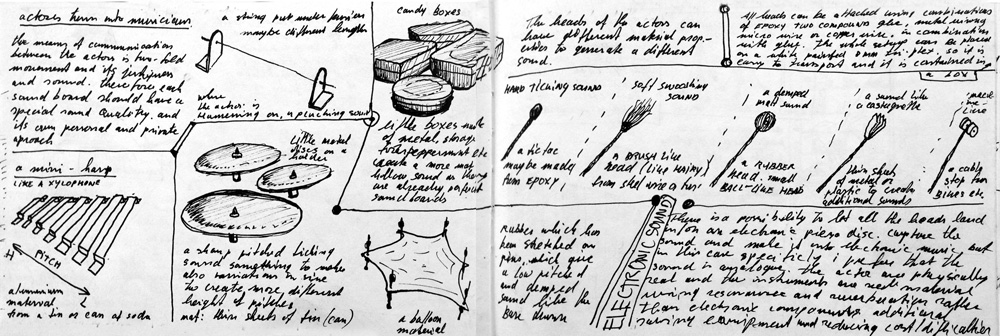 actors turn into musicians
the means of communications
between the actors is two-fold
movement and its techniques
and sound. therefore each
sound board should have a
special sound quality, and
its own personal and private
aproach
a mini - harp
LIKE A XYLOPHONE
H
PITCH
L
aluminium
material
from a tin or can of soda
a string put under tension
maybe different lengths
when
the actor is
hammering on, a plucking sound
Little metal
discs on a
holder
a sharp pitched ticking
sound something to make
also variations in size
to create, more different
height of pitches
mat: thin sheets of tin (can)
CANDY BOXES
little boxes made
of metal, storage
for peppermint etc
create a more mat
hollow sound as they
are already perfect
soundboards
a balloon
material
The heads of the actors can
have different material proper-
cities to generate a different
sound.
All heads can be attached using combinations
of EPOXY TWO compound glue, metal wiring
micro wire or copper wire, in combination
with glue. The whole setup can be placed
on a white painted 8 mm tri-plex, so it is
easy to transport and it is contained in
a box
HARD TICKING SOUND
a tic tac
maybe made
from EPOXY
soft swooshing
SOUND
a BRUSH like
head (like hairy)
from steel wire a hair
a damped
matt sound
a RUBBER
head. small
BALL-like HEAD
a sound like
a castagnette
thin sheets
of metal or
plastic to create
additional sounds
a cable
stop from
BIKES etc.
Rubber which has
been stretched on
pins, which give
a low pitched
and damped
sound like the
Base drum
ELECTRONIC SOUND
There is a possibility to let all the heads land
in/on an electronic piezo disc. capture the
sound and make it into electronic music. but
in this case specificly i prefer that the
sound is analogue. the actors are physically
real and the instruments are real material
using resonance and reverberation rather
than electronic components. additional
saving equipment and reducing cost/difficulties